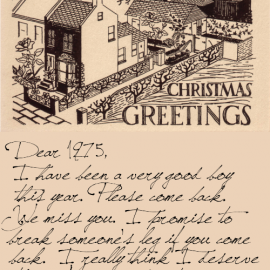 CHRISTMAS
GREETINGS
Dear 1975,
I have been a very good boy
this year. Please come back.
We miss you. I promise to
break someone's leg if you come
back. I really think I deserve